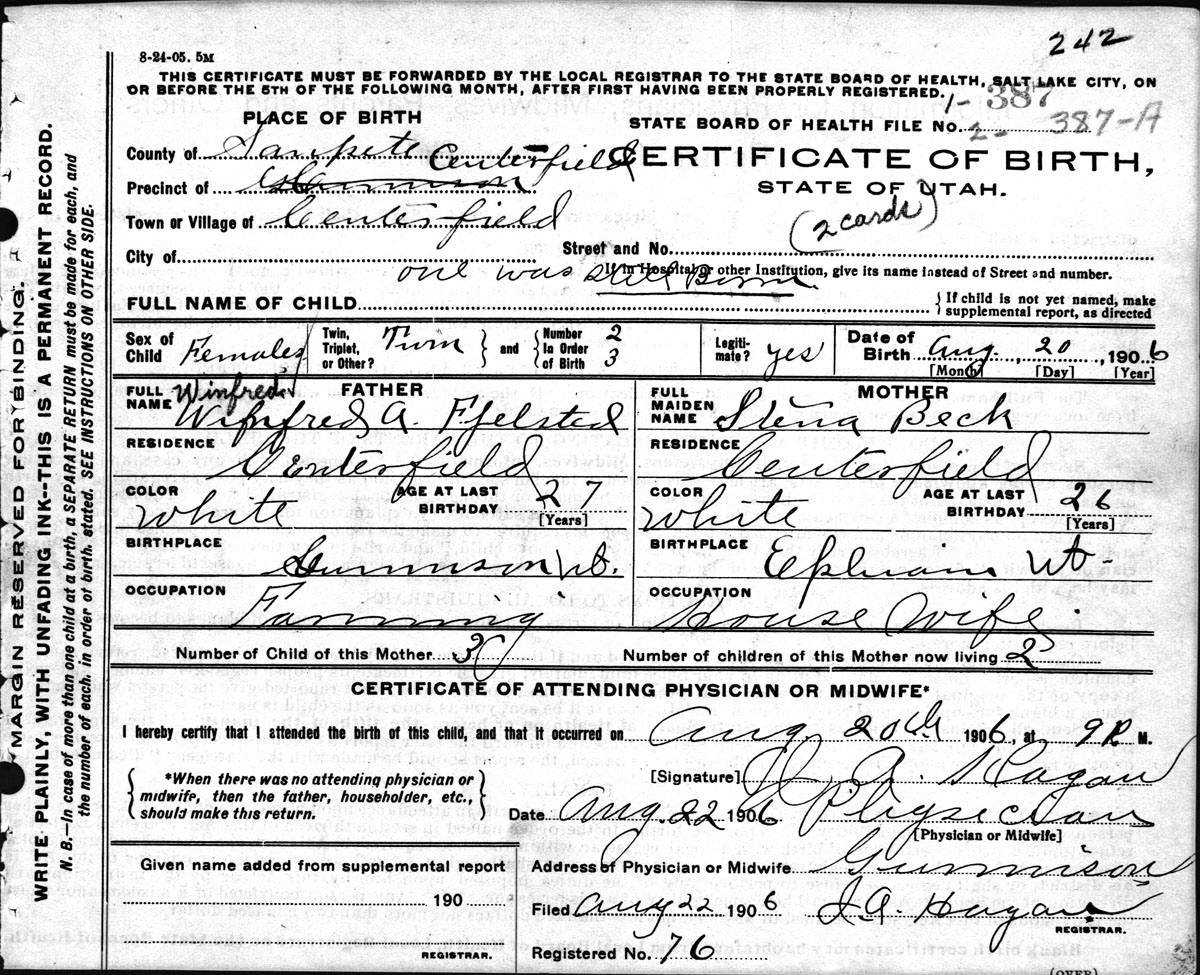 242
8-24-05. 5M
THIS CERTIFICATE MUST BE FORWARDED BY THE LOCAL REGISTRAR TO THE STATE BOARD OF HEALTH, SALT LAKE CITY, ON
OR BEFORE THE 5TH OF THE FOLLOWING MONTH, AFTER FIRST HAVING BEEN PROPERLY REGISTERED.
1- 387
PLACE OF BIRTH
STATE BOARD OF HEALTH FILE No. 2- 387-A
County of Sanpete
CERTIFICATE OF BIRTH,
Precinct of Gunnison Centerfield
STATE OF UTAH.
Town or Village of Centerfield
(2 cards)
City of
Street and No.
If in Hospital or other Institution, give its name instead of Street and number.
one was Still Born.
FULL NAME OF CHILD
{If child is not yet named, make supplemental report, as directed
Sex of Child Females
Twin, Triplet, or Other? Twin } and { Number in Order of Birth 2 3
Legitimate? yes
Date of Birth Aug. 20, 1906
[Month] [Day] [Year]
FATHER
MOTHER
FULL NAME Winfred A. Fjelsted
Winfred
FULL MAIDEN NAME Stena Beck
RESIDENCE Centerfield
RESIDENCE Centerfield
COLOR White AGE AT LAST BIRTHDAY 27 [Years]
COLOR White AGE AT LAST BIRTHDAY 26 [Years]
BIRTHPLACE Gunnison Ut.
BIRTHPLACE Ephraim Ut
OCCUPATION Farming
OCCUPATION House Wife.
Number of Child of this Mother 3
Number of children of this Mother now living 2
CERTIFICATE OF ATTENDING PHYSICIAN OR MIDWIFE*
I hereby certify that I attended the birth of this child, and that it occurred on Aug. 20th 1906, at 9 P. M.
{*When there was no attending physician or midwife, then the father, householder, etc., should make this return.}
[Signature] A. Hagan
Date Aug. 22 1906 Physician
[Physician or Midwife]
Given name added from supplemental report
Address of Physician or Midwife Gunnison
190
Filed Aug 22 1906 A. Hagan
REGISTRAR.
REGISTRAR.
Registered No. 76
(OVER)
MARGIN RESERVED FOR BINDING.
WRITE PLAINLY, WITH UNFADING INK--THIS IS A PERMANENT RECORD.
N. B.—In case of more than one child at a birth, a SEPARATE RETURN must be made for each, and
the number of each, in order of birth, stated. SEE INSTRUCTIONS ON OTHER SIDE.